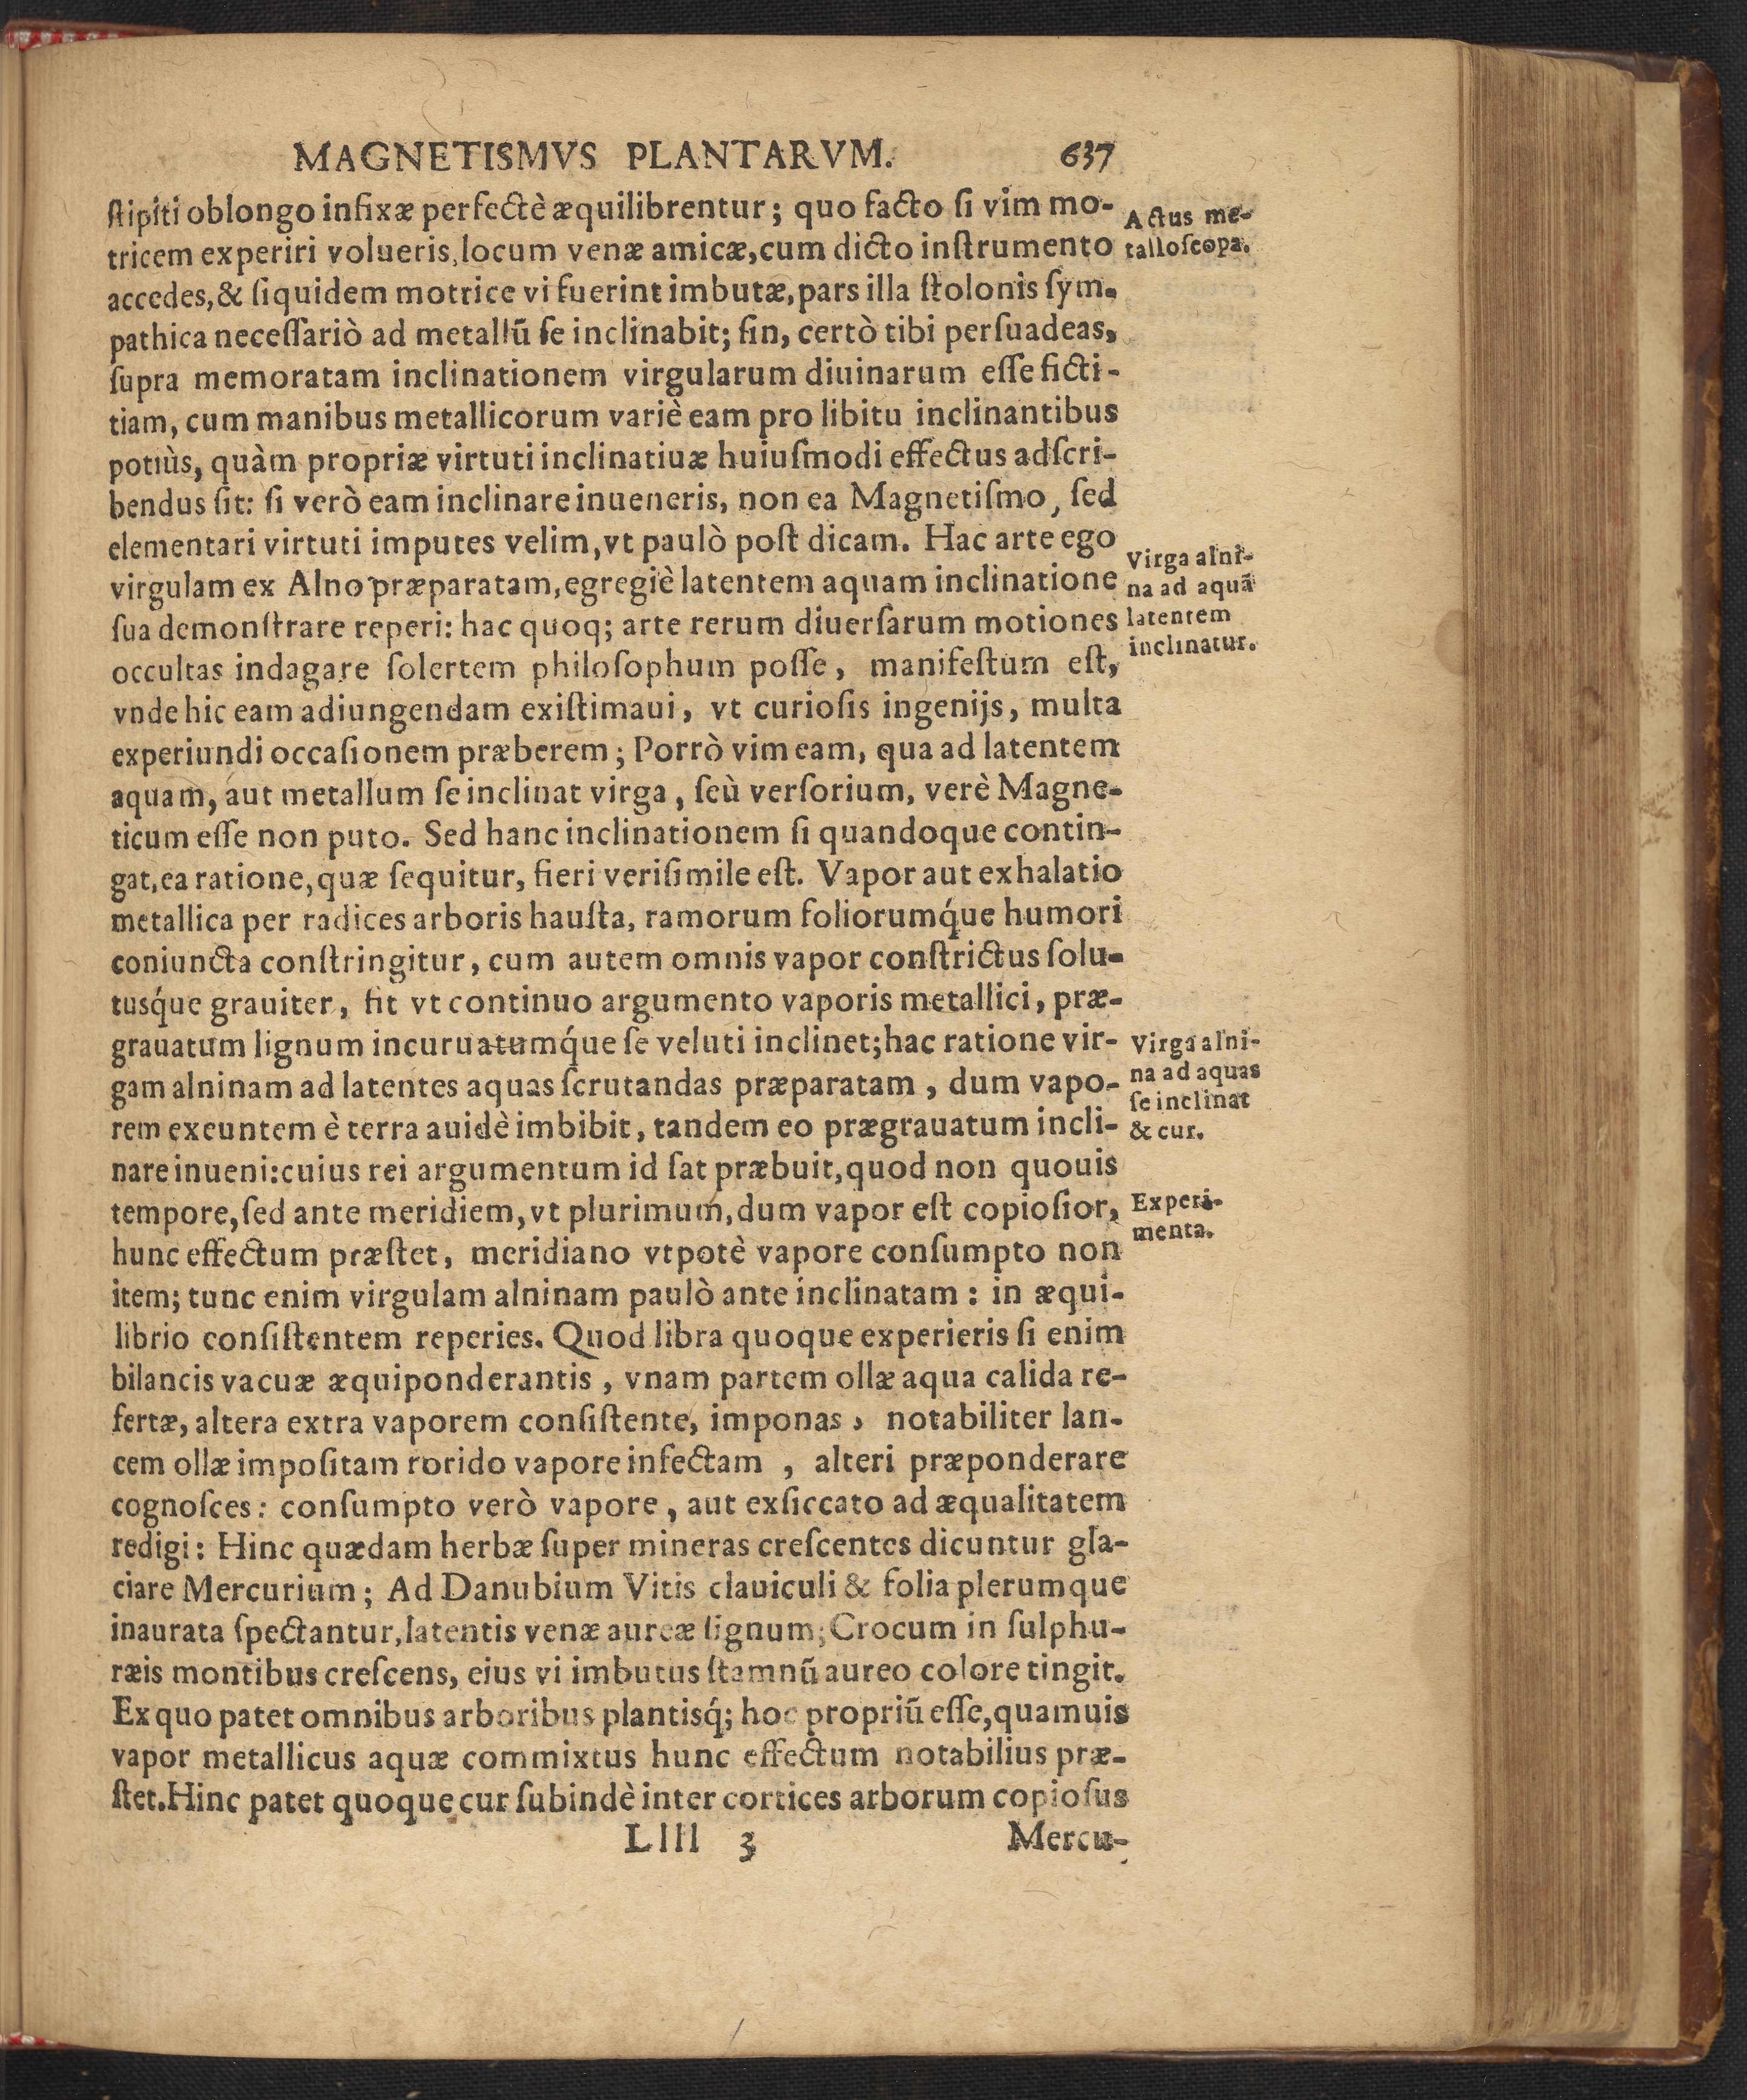 MAGNETISMVS PLANTARVM. 637
ſtipiti oblongo infixæ perfectè æquilibrentur; quo facto ſi vim mo-
tricem experiri volueris, locum venæ amicæ, cum dicto inſtrumento
accedes, & ſiquidem motrice vi fuerint imbutæ, pars illa ſtolonis ſym-
pathica neceſſariò ad metallū ſe inclinabit; ſin, certò tibi perſuadeas,
ſupra memoratam inclinationem virgularum diuinarum eſſe ficti-
tiam, cum manibus metallicorum variè eam pro libitu inclinantibus
potiùs, quàm propriæ virtuti inclinatiuæ huiuſmodi effectus adſcri-
bendus ſit: ſi verò eam inclinare inueneris, non ea Magnetiſmo, ſed
elementari virtuti imputes velim, vt paulò poſt dicam. Hac arte ego
virgulam ex Alno præparatam, egregiè latentem aquam inclinatione
ſua demonſtrare reperi: hac quoq; arte rerum diuerſarum motiones
occultas indagare ſolertem philoſophum poſſe, manifeſtum eſt,
vnde hic eam adiungendam exiſtimaui, vt curioſis ingenijs, multa
experiundi occaſionem præberem; Porrò vim eam, qua ad latentem
aquam, aut metallum ſe inclinat virga, ſeù verſorium, verè Magne-
ticum eſſe non puto. Sed hanc inclinationem ſi quandoque contin-
gat, ea ratione, quæ ſequitur, fieri veriſimile eſt. Vapor aut exhalatio
metallica per radices arboris hauſta, ramorum foliorumq́ue humori
coniuncta conſtringitur, cum autem omnis vapor conſtrictus ſolu-
tusq́ue grauiter, fit vt continuo argumento vaporis metallici, præ-
grauatum lignum incuruatumq́ue ſe veluti inclinet; hac ratione vir-
gam alninam ad latentes aquas ſcrutandas præparatam, dum vapo-
rem exeuntem è terra auidè imbibit, tandem eo prægrauatum incli-
nare inueni: cuius rei argumentum id ſat præbuit, quod non quouis
tempore, ſed ante meridiem, vt plurimum, dum vapor eſt copioſior,
hunc effectum præſtet, meridiano vtpotè vapore conſumpto non
item; tunc enim virgulam alninam paulò ante inclinatam: in æqui-
librio conſiſtentem reperies. Quod libra quoque experieris ſi enim
bilancis vacuæ æquiponderantis, vnam partem ollæ aqua calida re-
fertæ, altera extra vaporem conſiſtente, imponas, notabiliter lan-
cem ollæ impoſitam rorido vapore infectam, alteri præponderare
cognoſces: conſumpto verò vapore, aut exſiccato ad æqualitatem
redigi: Hinc quædam herbæ ſuper mineras creſcentes dicuntur gla-
ciare Mercurium; Ad Danubium Vitis clauiculi & folia plerumque
inaurata ſpectantur, latentis venæ aureæ ſignum; Crocum in ſulphu-
ræis montibus creſcens, eius vi imbutus ſtamnū aureo colore tingit.
Ex quo patet omnibus arboribus plantisq́; hoc propriū eſſe, quamuis
vapor metallicus aquæ commixtus hunc effectum notabilius præ-
ſtet. Hinc patet quoque cur ſubindè inter cortices arborum copioſus
Llll 3 Mercu-
Actus me-
talloſcopa.
Virga alni-
na ad aquā
latentem
inclinatur.
Virga alni-
na ad aquas
ſe inclinat
& cur.
Experi-
menta.